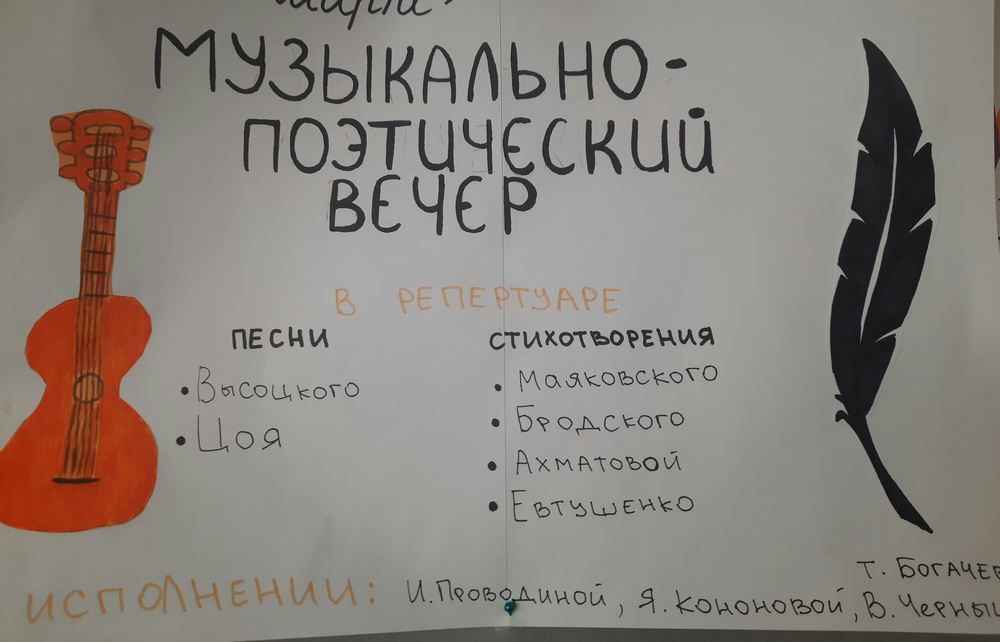 МУЗЫКАЛЬНО-
ПОЭТИЧЕСКИЙ
ВЕЧЕР
В РЕПЕРТУАРЕ
ПЕСНИ
• Высоцкого
• Цоя
СТИХОТВОРЕНИЯ
• Маяковского
• Бродского
• Ахматовой
• Евтушенко
Т. БОГАЧЕВ
ИСПОЛНЕНИИ: И. Проводиной, Я. Кононовой, В. Черны